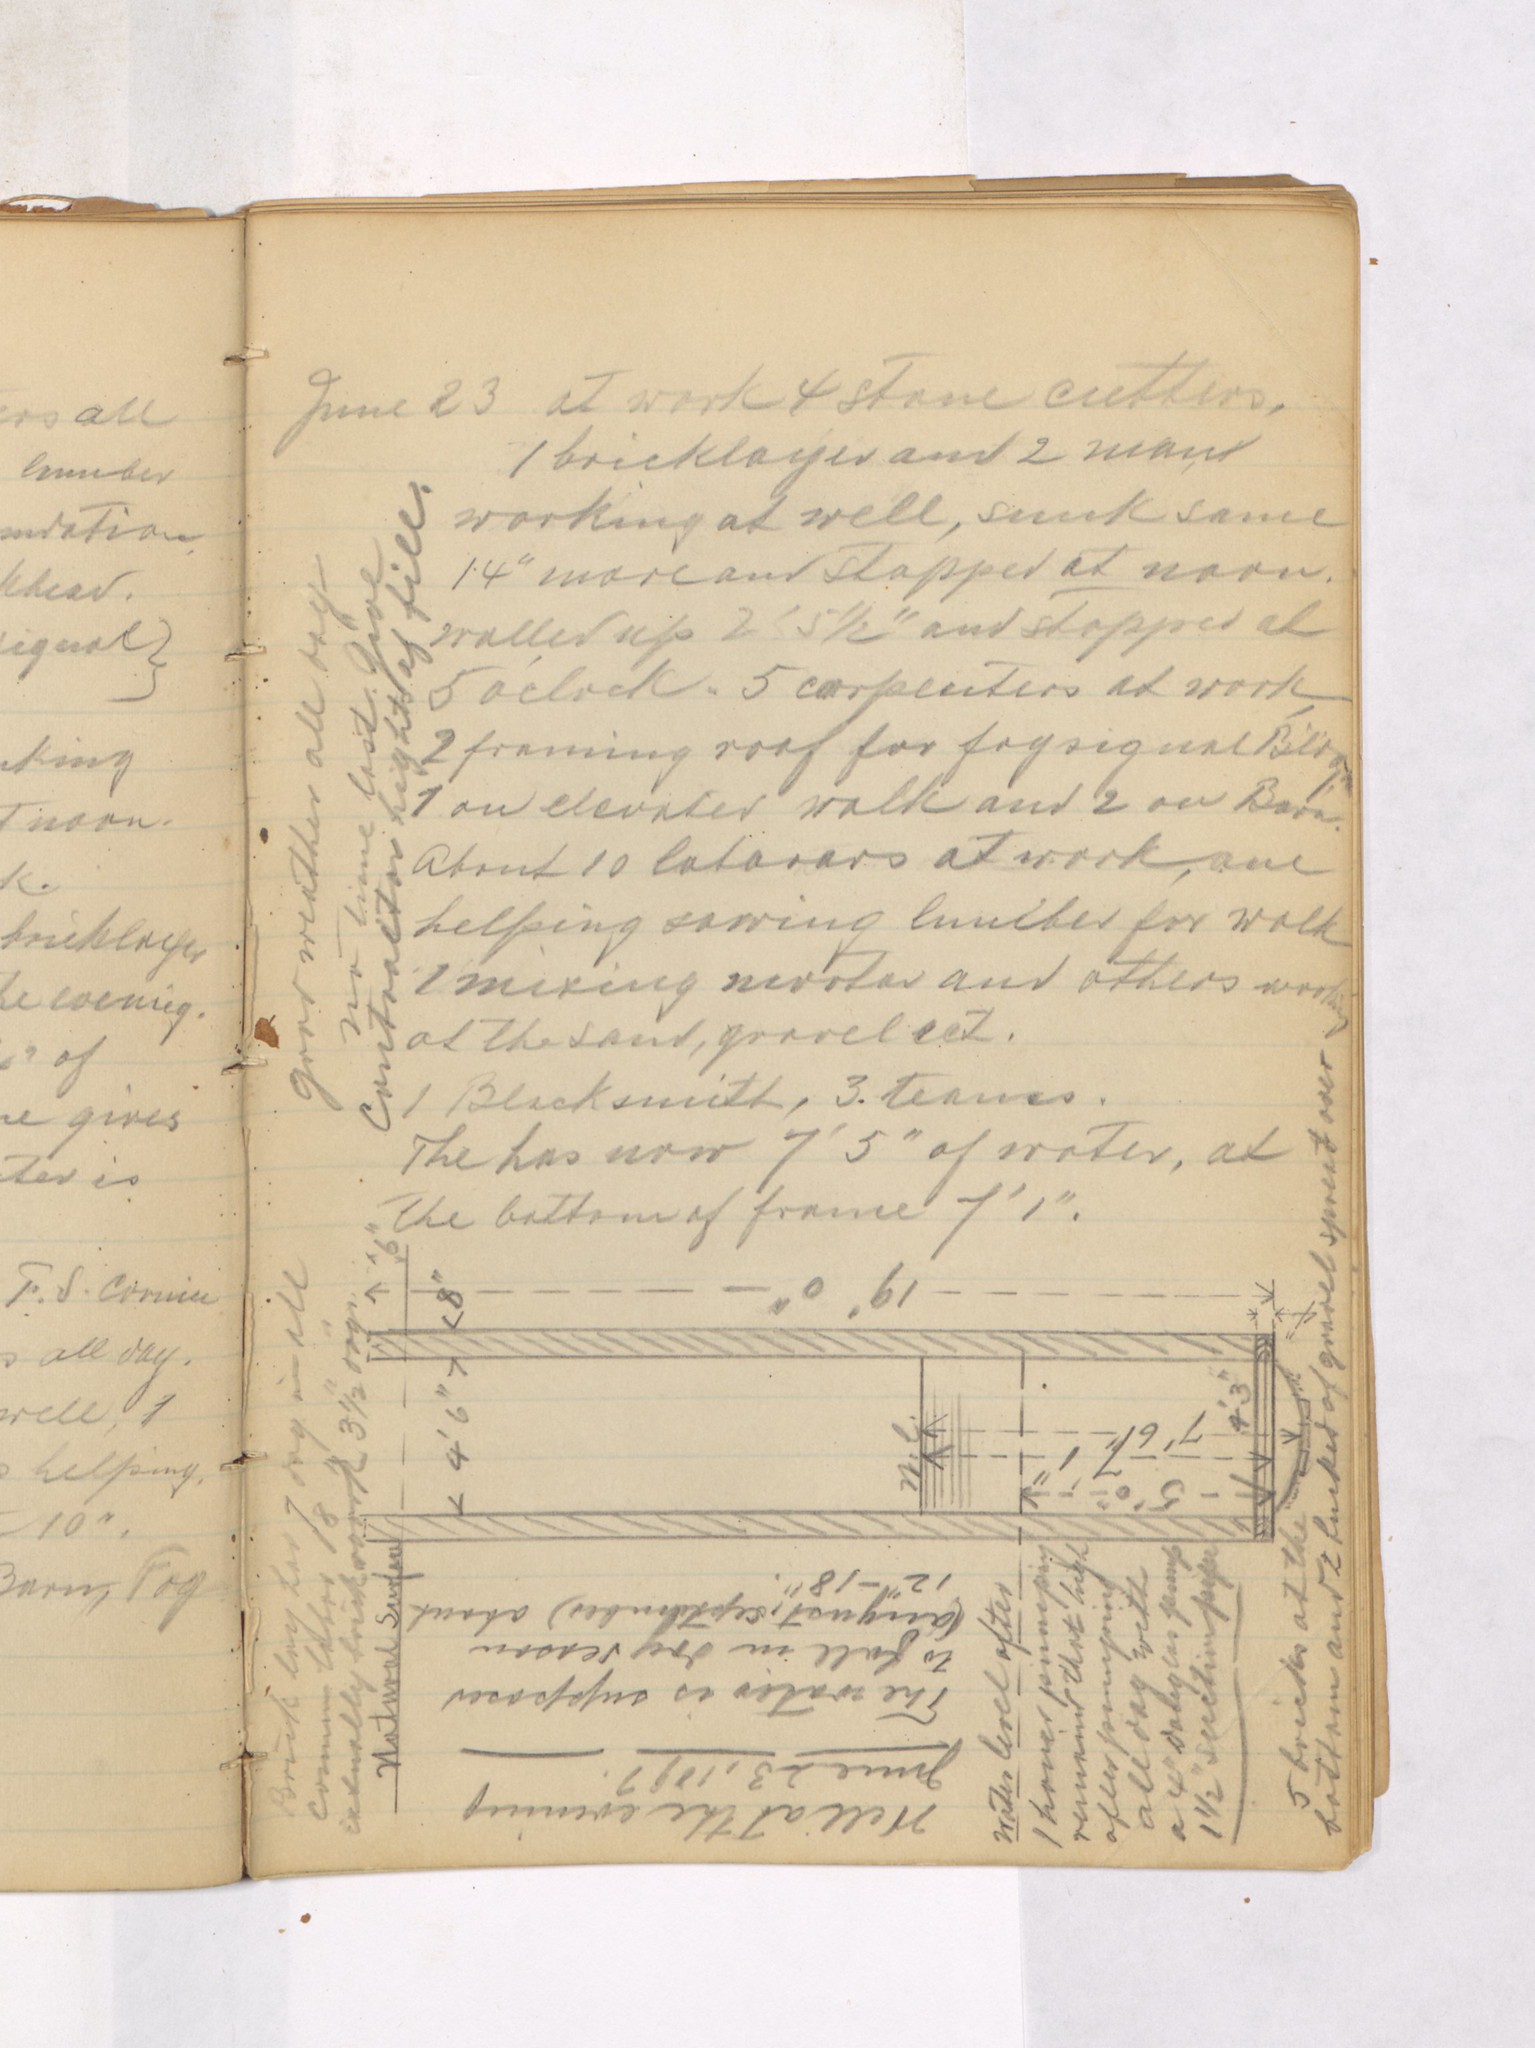 ers all
lumber
undation,
khead.
signal}
nking
t noon.
k.
bricklayer
he evenig.
" of
ne gives
ter is
F. S. Cornice
s all day.
well, 1
s helping.
10".
Barn, Fog
June 23 at work 4 stone cutters,
1 bricklayer and 2 mans
working at well, sunk same
14" more and stopped at noon.
walled up 2' 5½" and stopped at
5 oclock. 5 carpenters at work,
2 framing roof for fogsignal Bild'g
1 on elevated walk and 2 on Barn.
About 10 labarars at work, one
helping sawing lumber for walk
1 mixing mortar and others working
at the sand, gravel ect.
1 Blacksmith, 3. teams.
The has now 7' 5" of water, at
the bottom of frame 7' 1".
good weather all day
no time lost. Give
Contractor hights of fill.
Brick lay has 7 day in all
Common labor 18 "
actually brickwork 3½ days.
Natural Surface
6"
8"
19' 0"
4' 6"
W. L.
7' 6"
7' 1"
5' 0"
4' 3"
4"
Well at the evening
June 23, 1897.
The water is supposed
to fall in dry season
(august, september) about
12"-18".
Water level after
1 houer pumping
remaind that high
after pumping
all day with
a 4" duglas pump
1½" suction pipe
5 bricks at the
bottom and 2 bucked of gravel spreat over